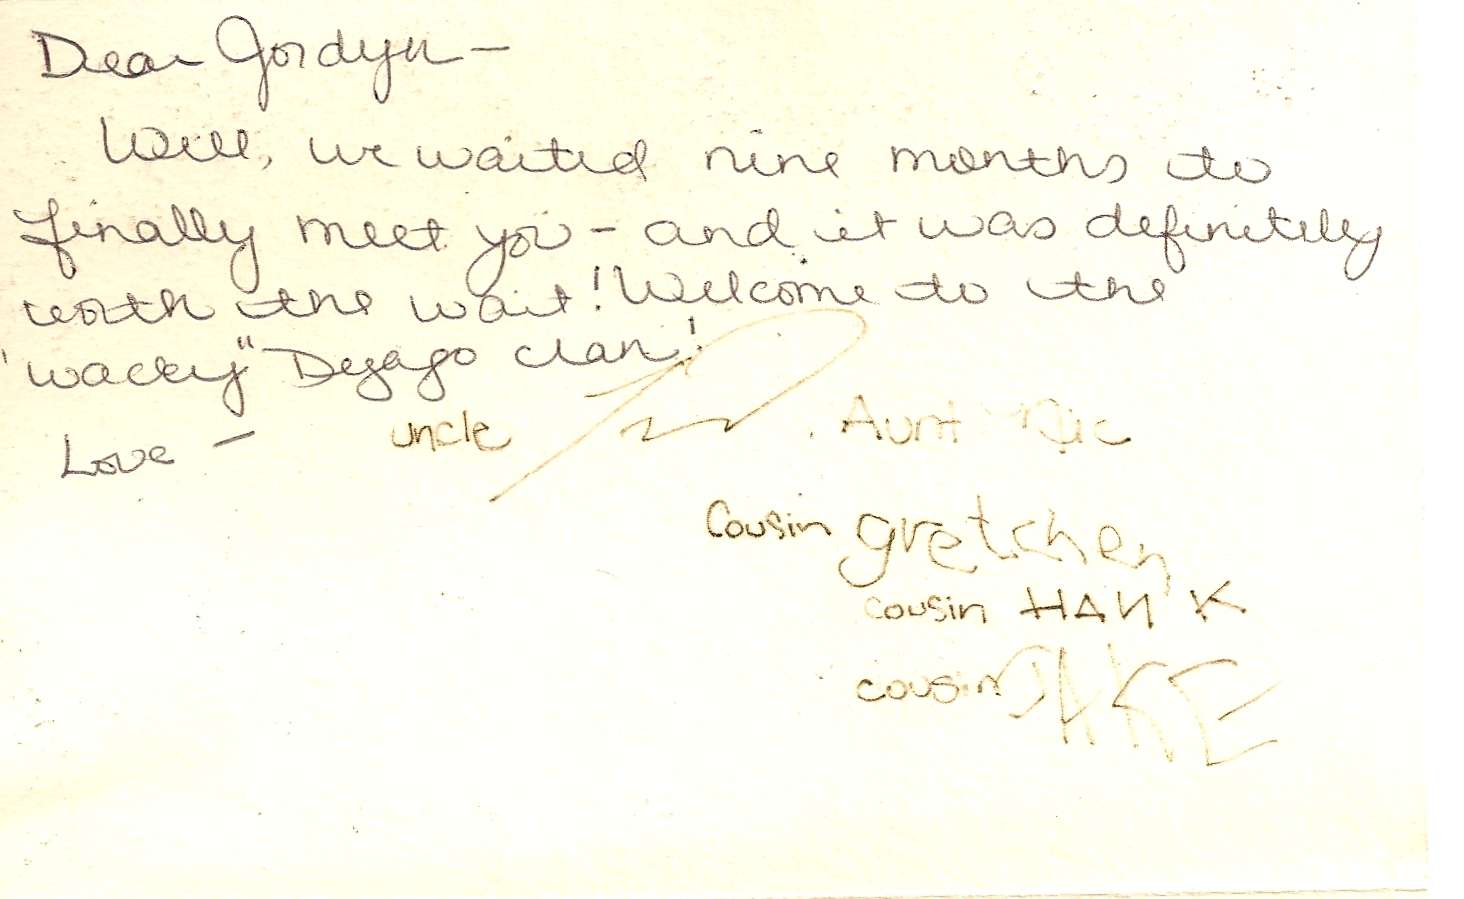 Dear Jordyn –
Well, we waited nine months to
finally meet you – and it was definitely
worth the wait! Welcome to the
"wacky" Dezago clan!
Love – uncle Aunt Ric
Cousin gretchen
cousin HANK
cousin JAKE